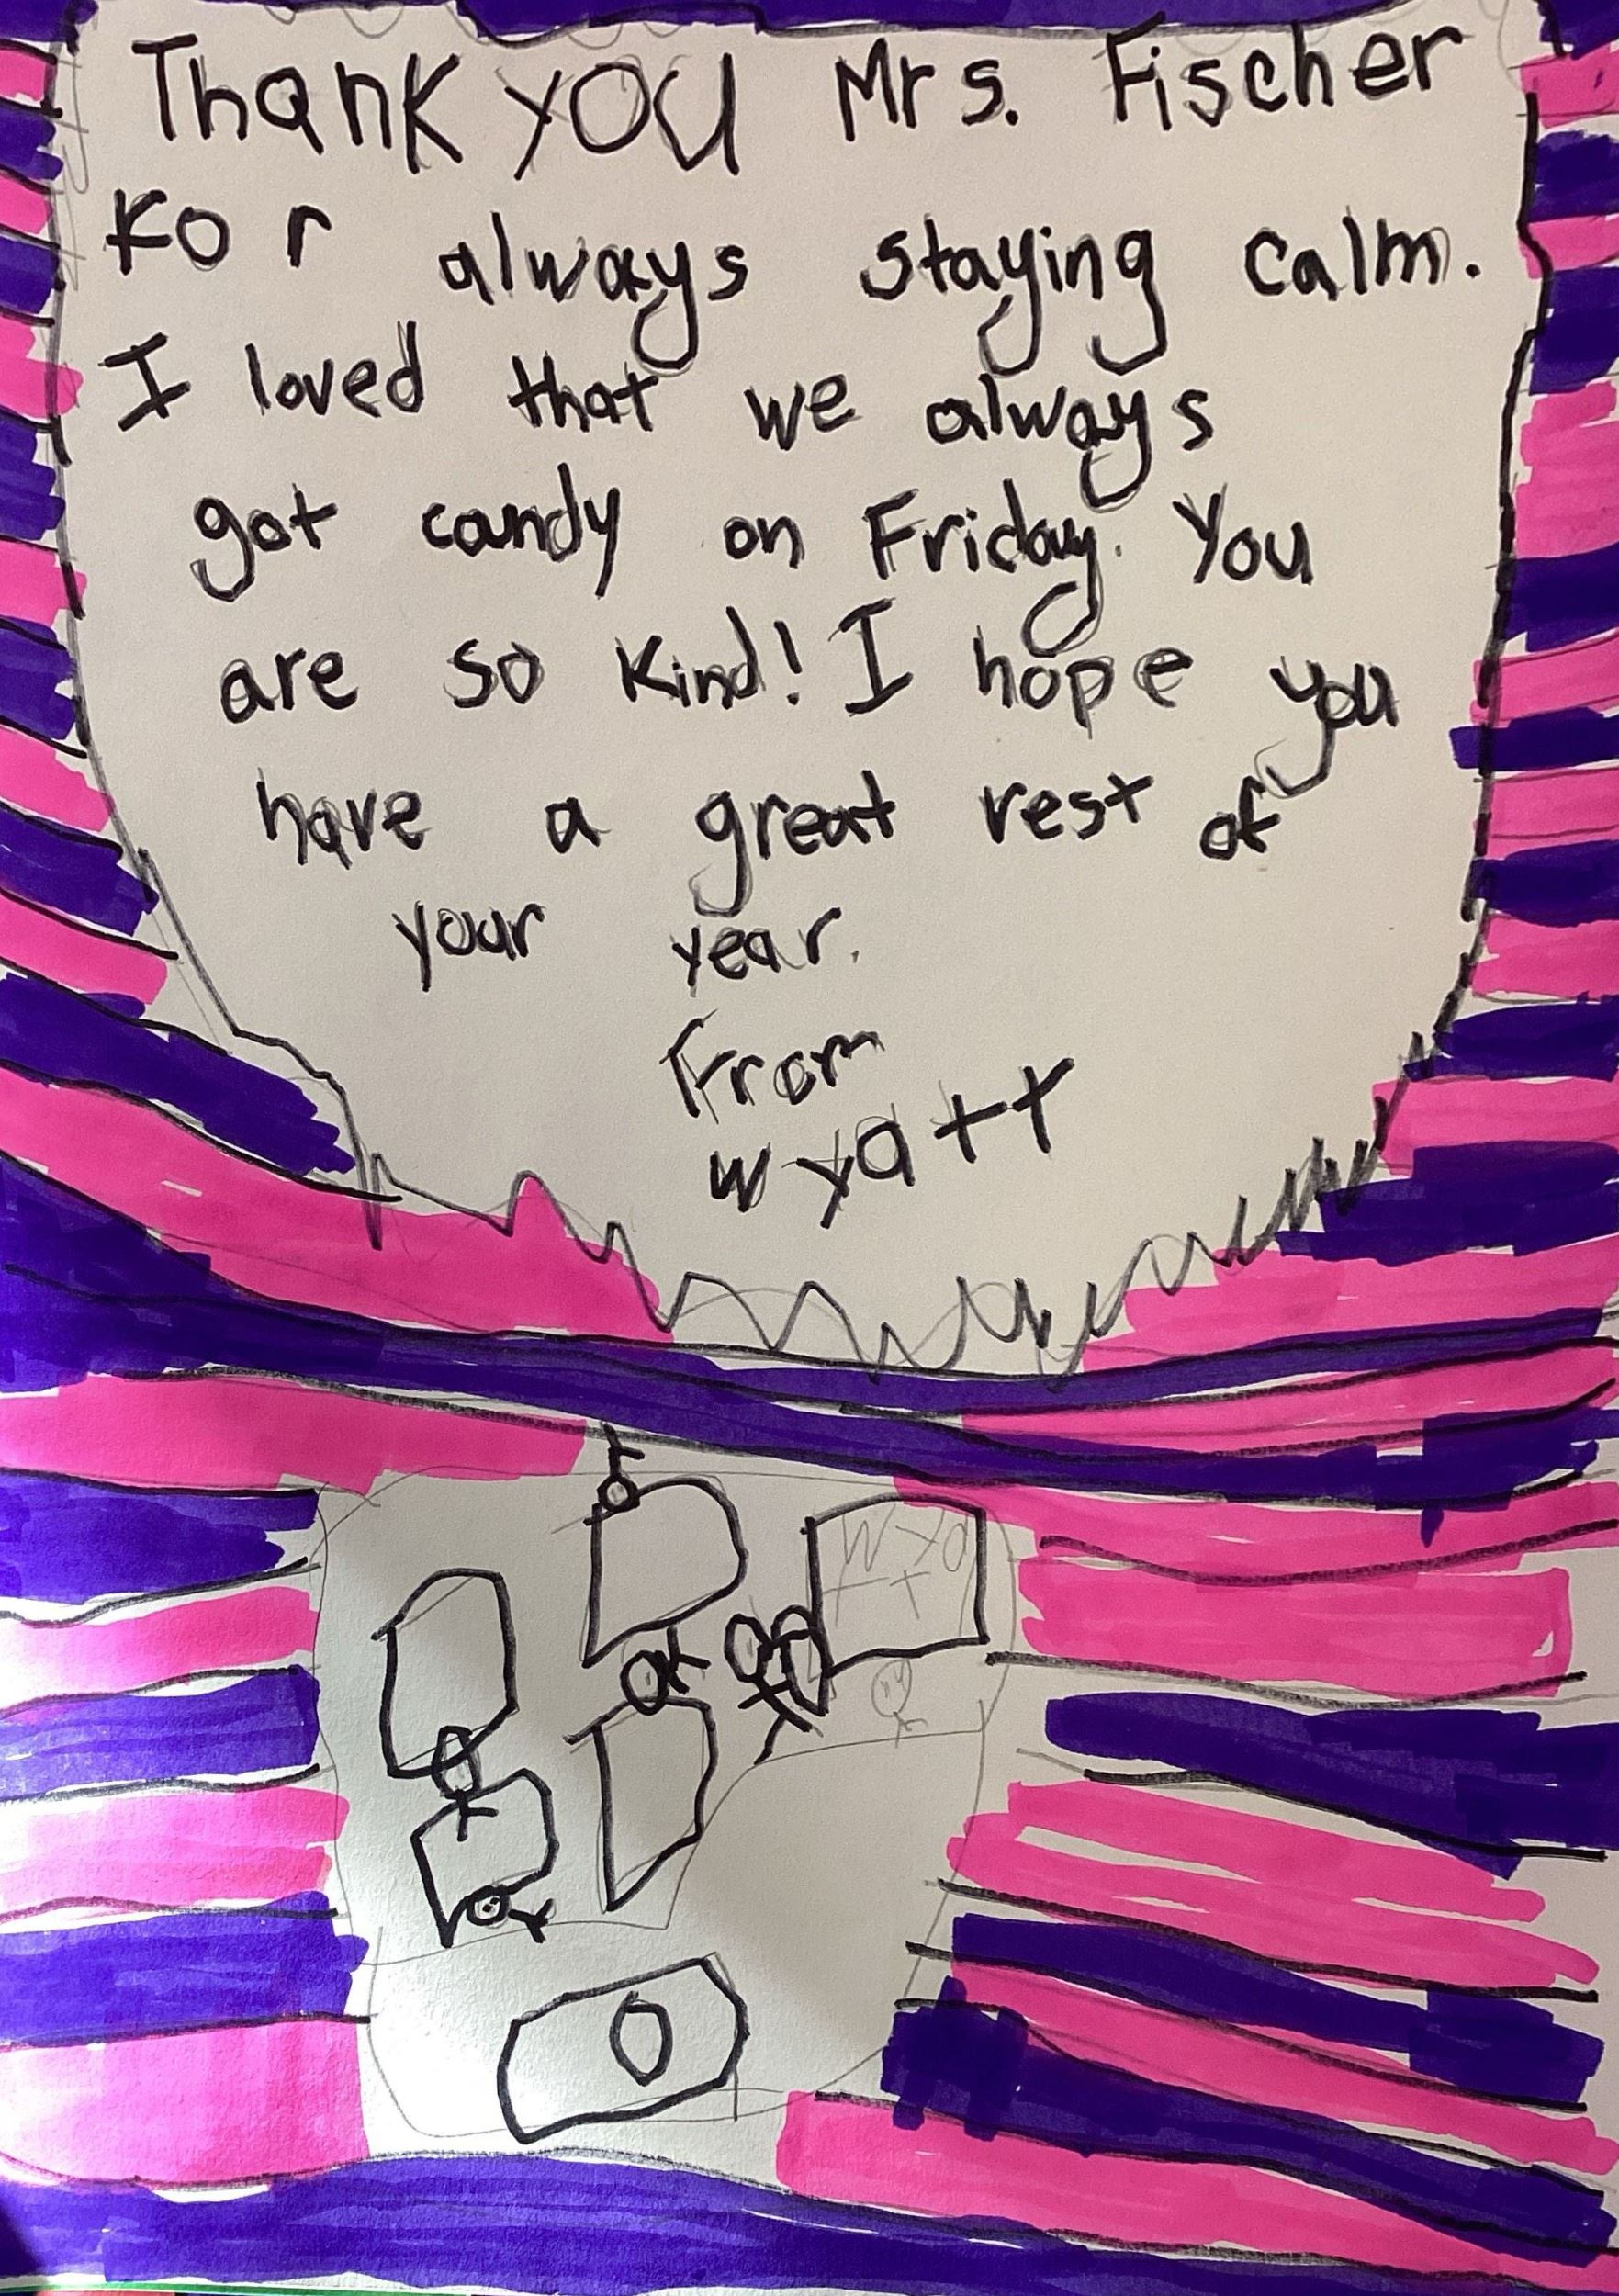 Thank you Mrs. Fischer
For always staying calm.
I loved that we always
got candy on Friday. You
are so kind! I hope you
have a great rest of
your year.
From
Wyatt
Wya
tt